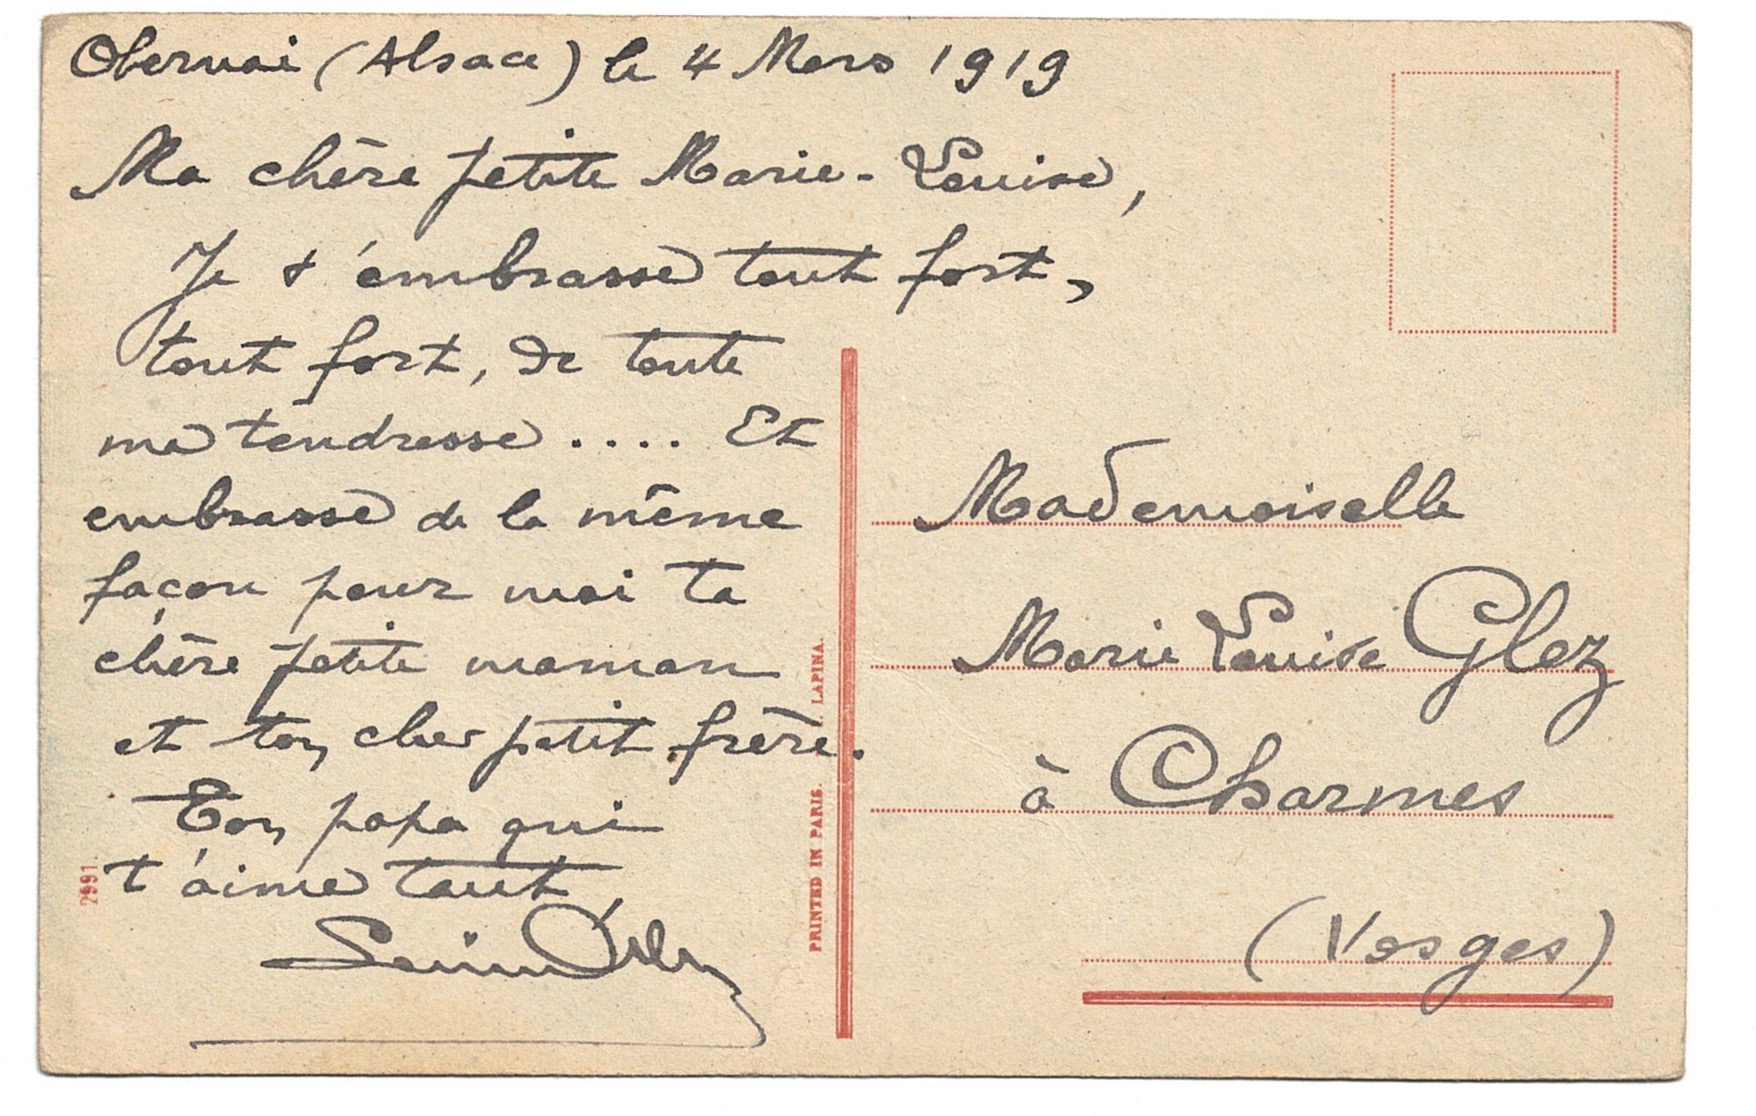 Obernai (Alsace) le 4 Mars 1919
Ma chère petite Marie-Louise,
Je t'embrasse tout fort,
tout fort, de toute
ma tendresse .... Et
embrasse de la même
façon pour moi ta
chère petite maman
et ton cher petit frère.
Ton papa qui
t'aime tant,
Mademoiselle
Marie Louise Glez
à Charmes
(Vosges)
2991.
PRINTED IN PARIS. LAPINA.